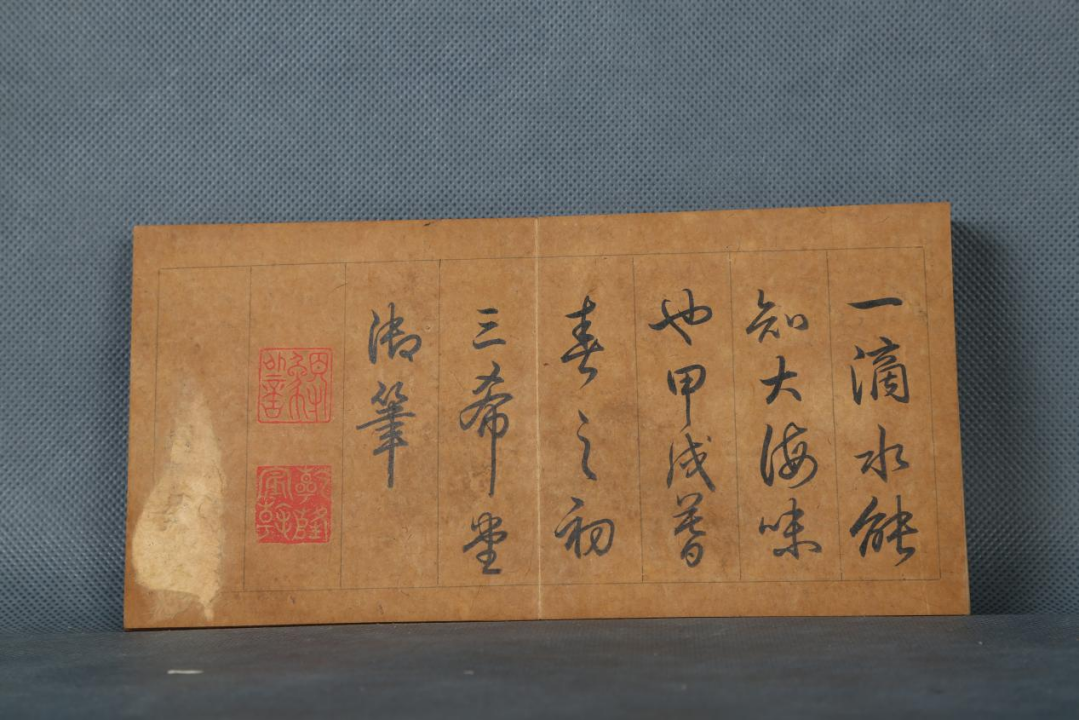 一滴水能
知大海味
也甲戌暮
春之初
三希堂
御筆
乾隆宸翰